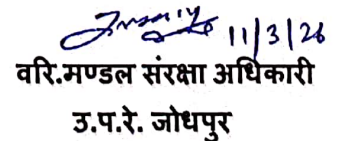 11/3/26
वरि.मण्डल संरक्षा अधिकारी
उ.प.रे. जोधपुर